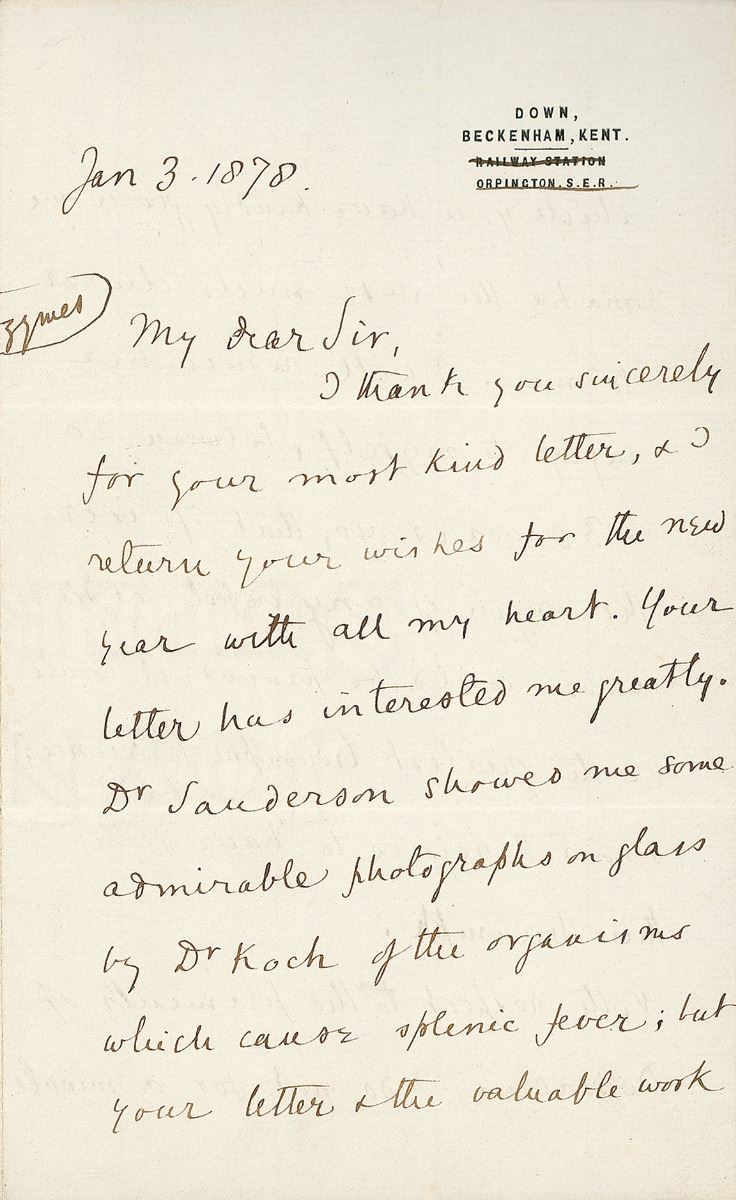 DOWN,
BECKENHAM, KENT.
RAILWAY STATION
ORPINGTON. S.E.R.
Jan 3. 1878.
zymes
My dear Sir,
I thank you sincerely
for your most kind letter, & I
return your wishes for the new
year with all my heart. Your
letter has interested me greatly.
Dr Sanderson showed me some
admirable photographs on glass
by Dr Koch of the organisms
which cause splenic fever; but
your letter & the valuable work